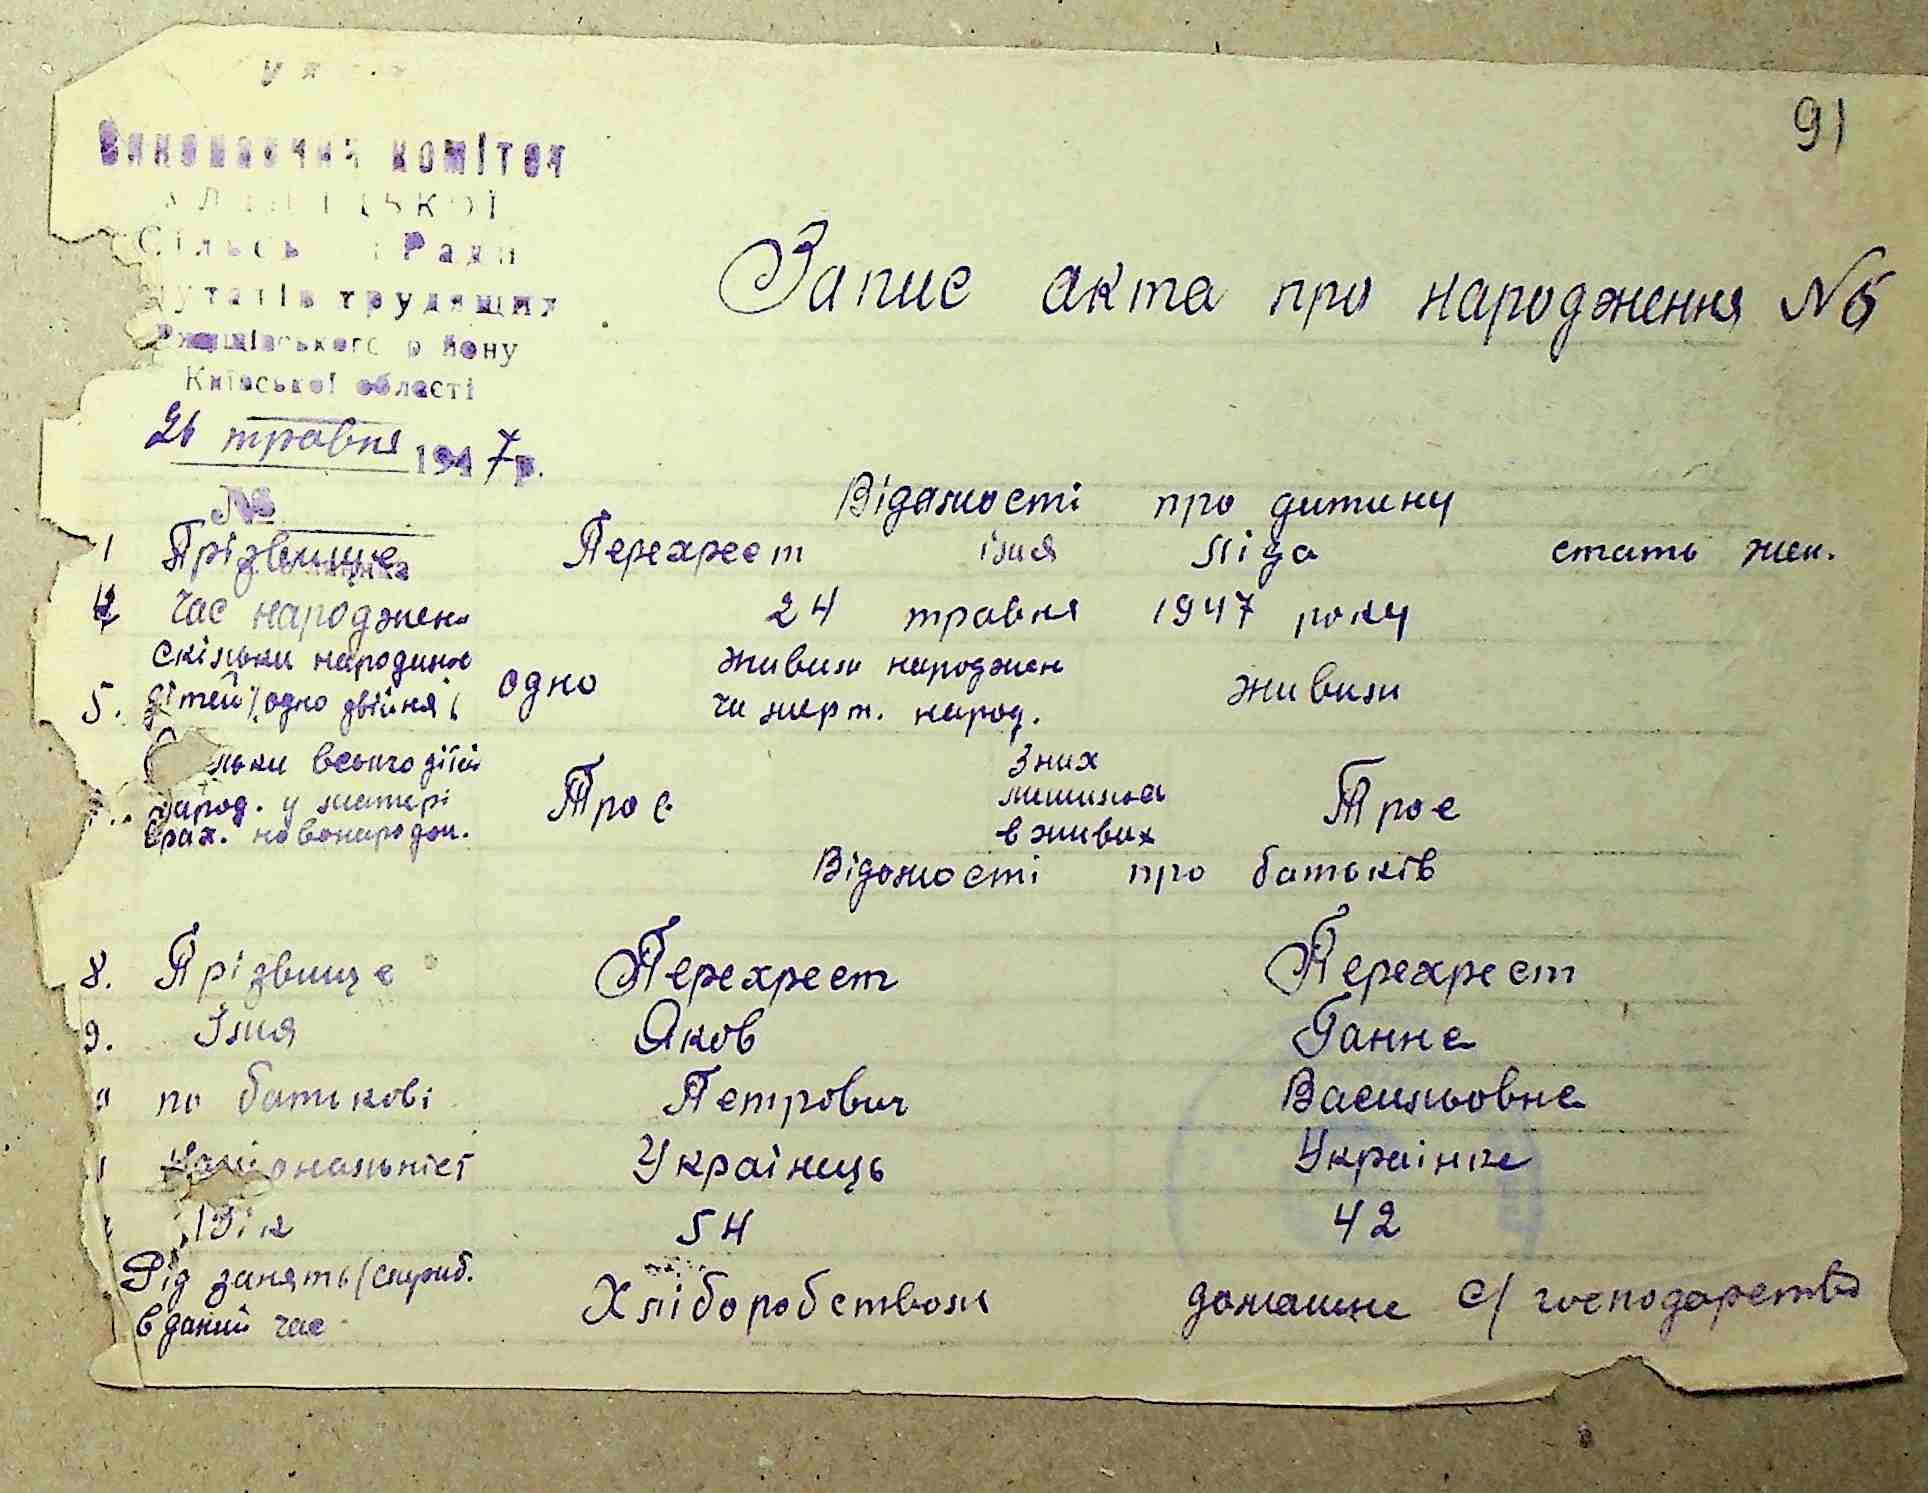 91
Виконавчий комітет
Сільсь Ради
трудящих
Ржищівського району
Київської області
26 травня 1947р.
№
Запис акта про народження №6
Відамості про дитину
1 Прізвище Перехрест імя Ліда стать жен.
4 Час народжен. 24 травня 1947 року
5. Скільки народилос дітей (одно двійня) одно живим народжен чи мерт. народ. живим
льки всього дітей народ. у матері врах. новонародж. Троє З них лишилось в живих Троє
Відомості про батьків
8. Прізвище Перехрест Перехрест
9. Імя Яков Ганна
" по батькові Петрович Васильовна
Національніст Українець Украінка
Вік 54 42
Рід занять в даний час Хліборобством домашнє с/господарство